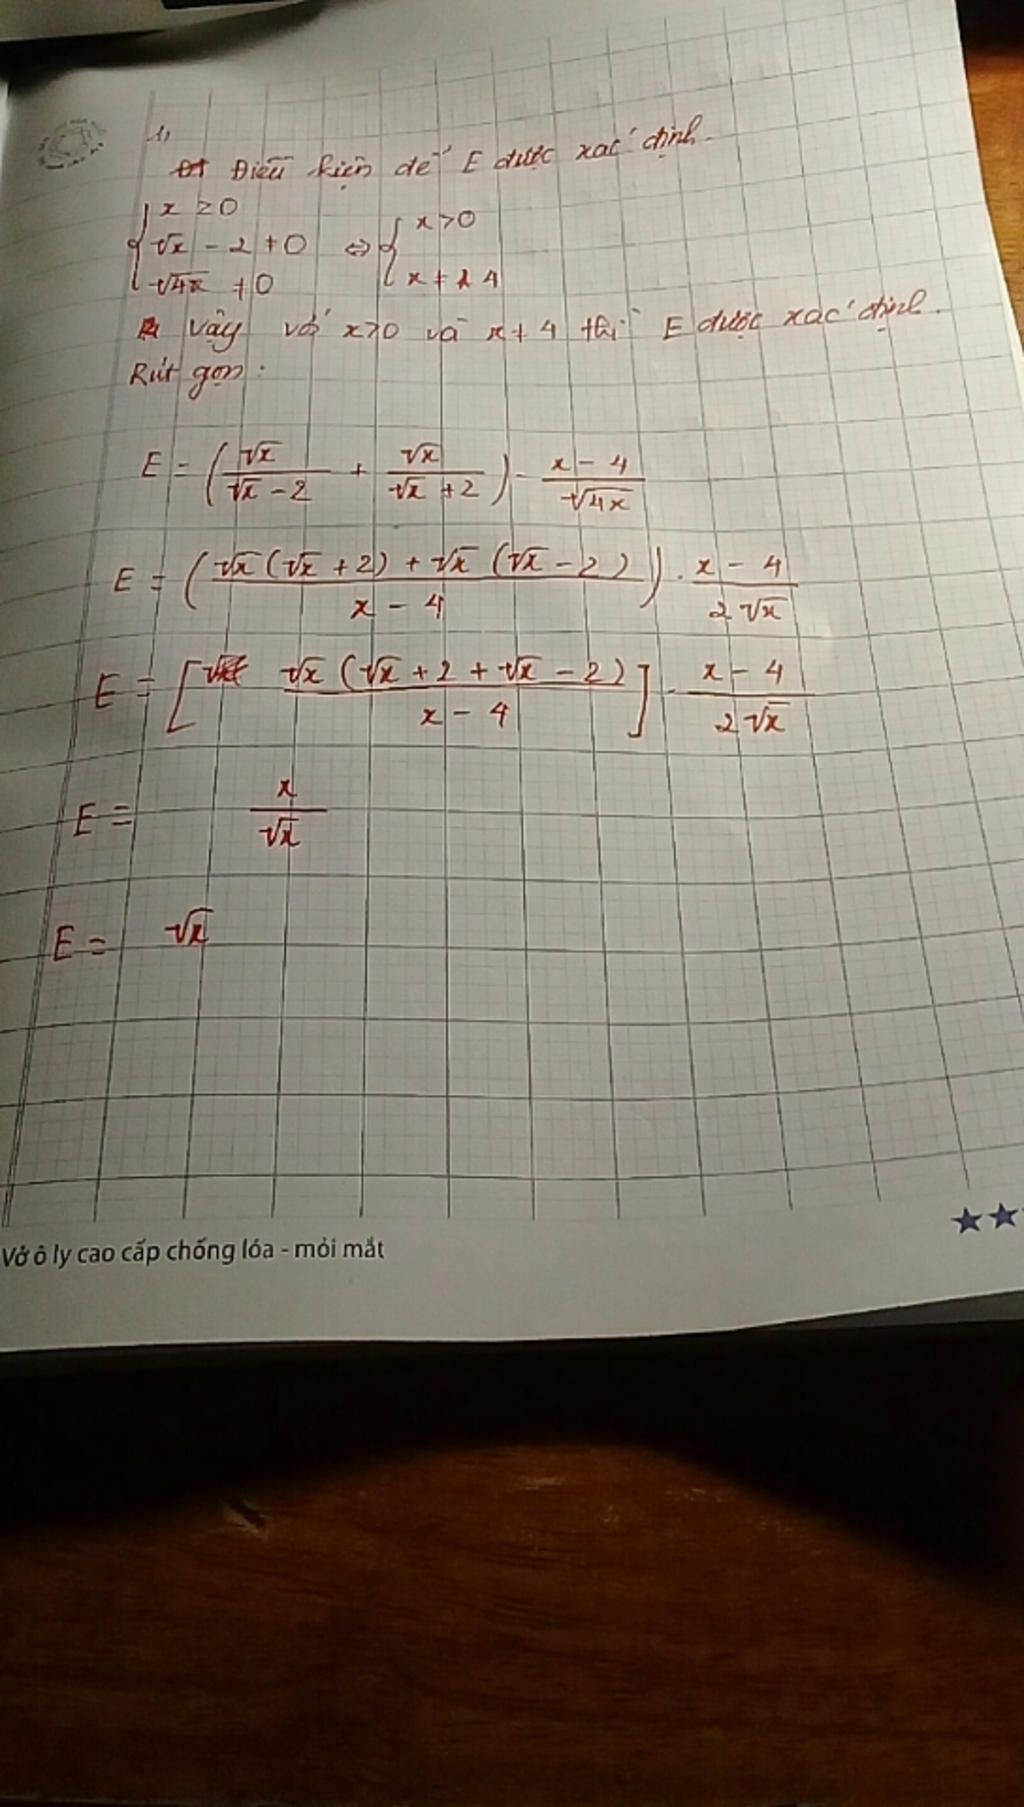 1,
Điều kiện để E được xác định.
{ x ≥ 0
√x - 2 ≠ 0 ⇔ { x > 0
√4x ≠ 0 x ≠ 4
Vậy với x>0 và x ≠ 4 thì E được xác định.
Rút gọn:
E = (√x/(√x - 2) + √x/(√x + 2)) · (x - 4)/√4x
E = ((√x(√x + 2) + √x(√x - 2))/(x - 4)) · (x - 4)/(2√x)
E = [√x(√x + 2 + √x - 2)/(x - 4)] · (x - 4)/(2√x)
E = x/√x
E = √x
Vở ô ly cao cấp chống lóa - mỏi mắt